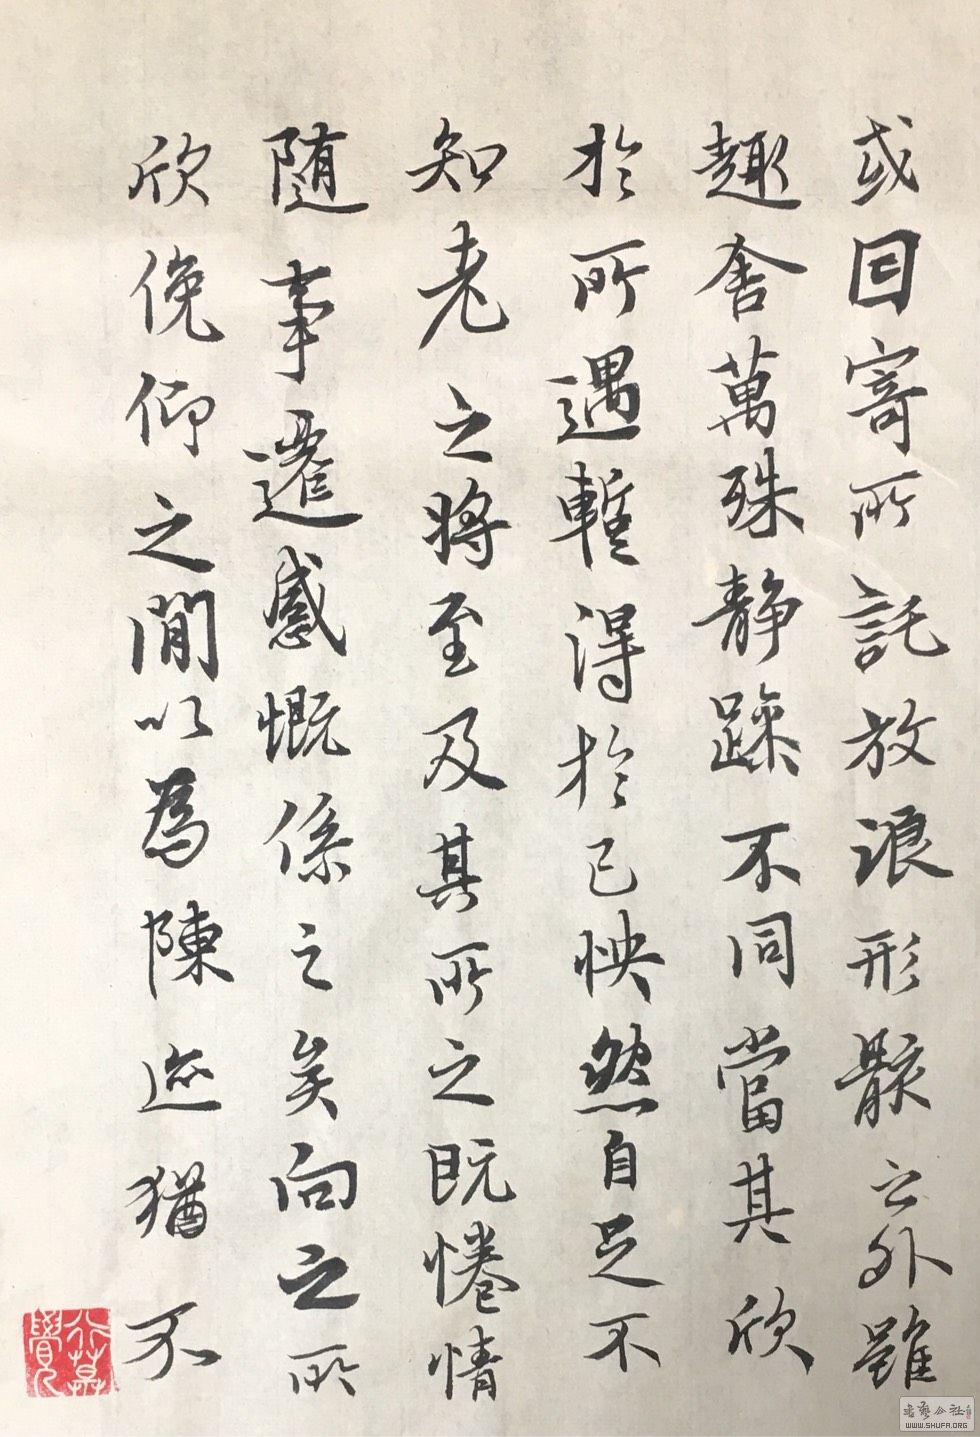 或因寄所託放浪形骸之外雖
趣舍萬殊静躁不同當其欣
於所遇暫得於己怏然自足不
知老之將至及其所之既惓情
随事遷感慨係之矣向之所
欣俛仰之閒以為陳迹猶不
WWW.SHUFA.ORG